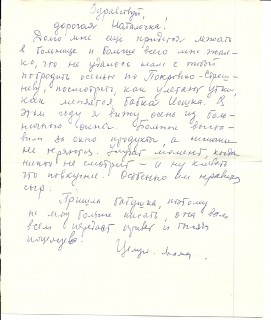 Здравствуй,
дорогая Наталочка!
Долго мне еще придется лежать
в больнице и больше всего мне жал-
ко, что не удалось нам с тобой
побродить осенью по Покровско-Стреш-
неву, посмотреть, как улетают утки,
как меняется бабка Ёшка. В
этом году я вижу осень из боль-
ничного окна. Больные выста-
вили за окно продукты, а
не теряются. момент, когда
никто не смотрит – и ну клевать
что повкуснее. Особенно им нравится
сыр.
Пришла бабушка, поэтому
не могу больше писать, она вам
всем передает привет и тысячу
поцелуев.
Целую. мама